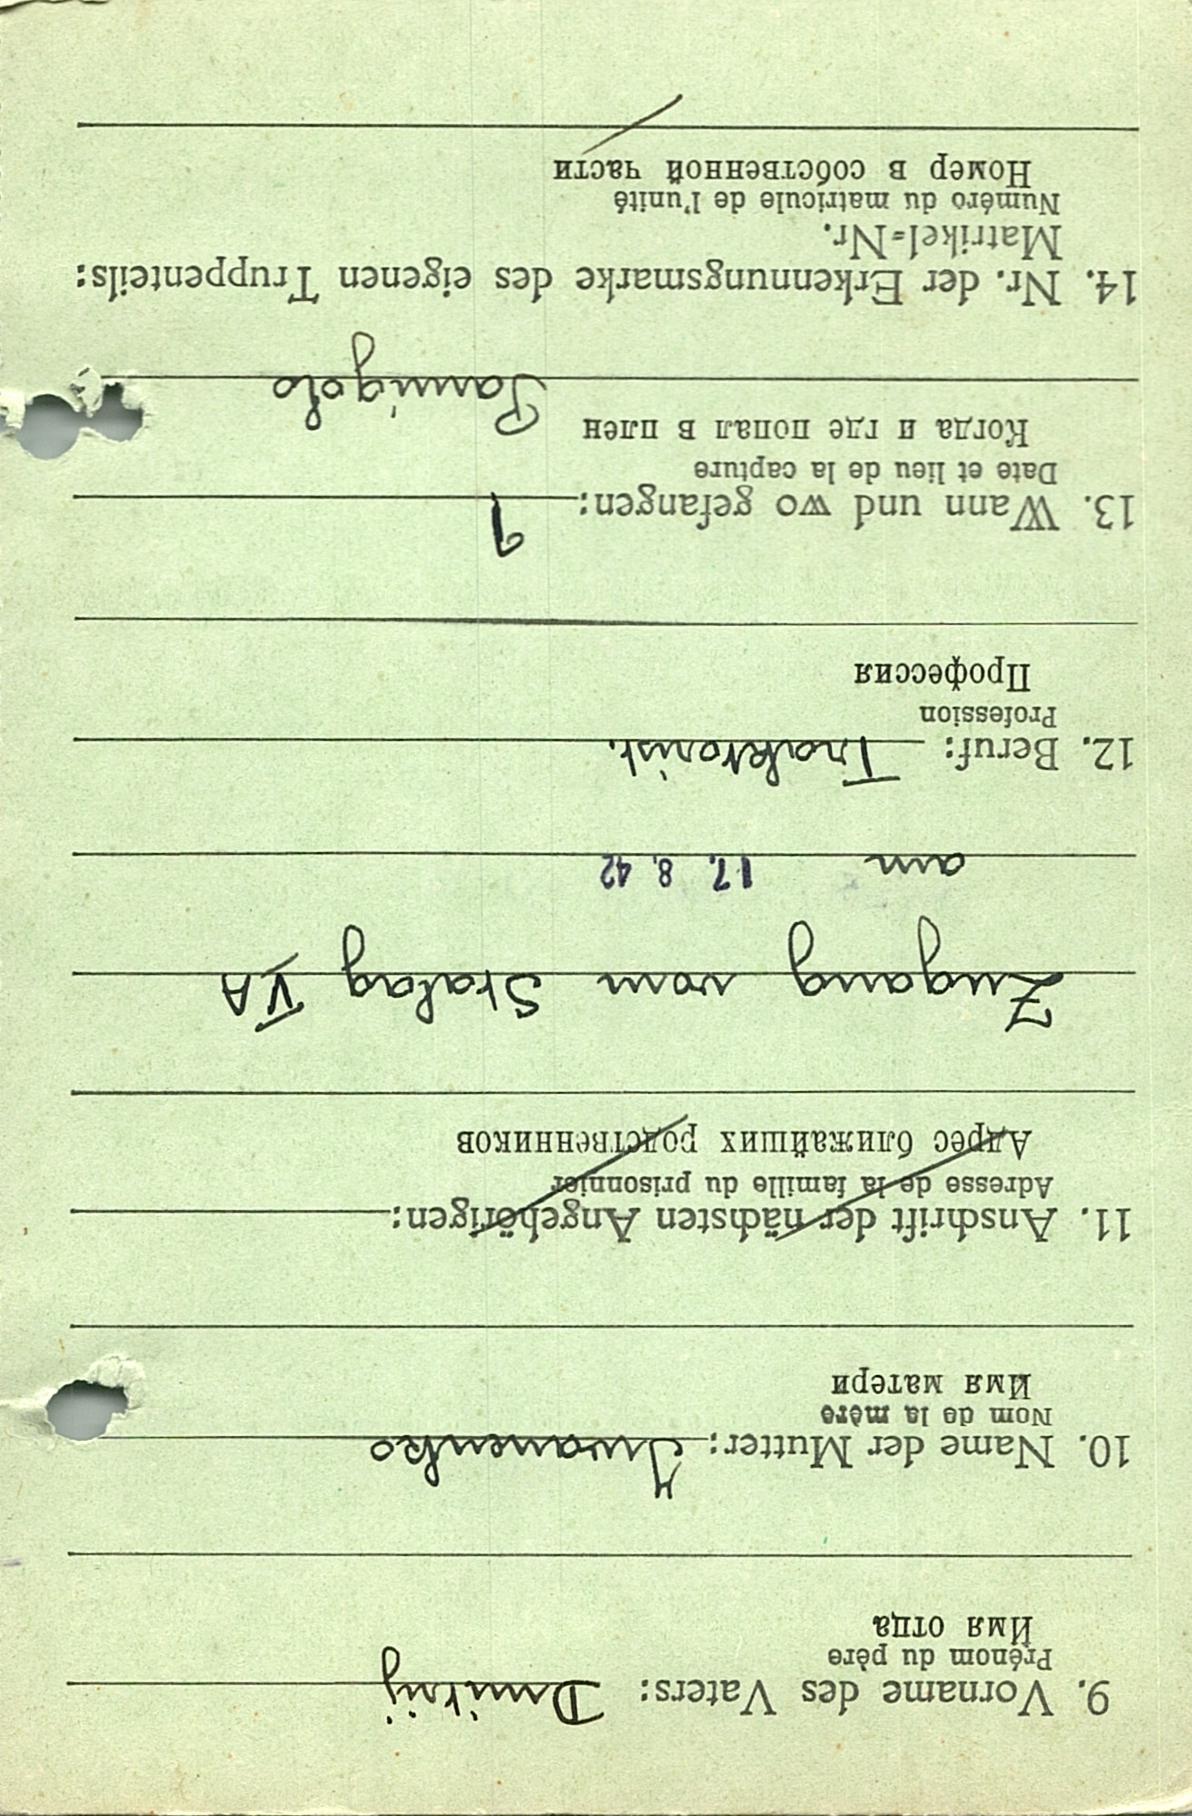 9. Vorname des Vaters: Dmitrij
Prénom du père
Имя отца
10. Name der Mutter: Iwanenko
Nom de la mère
Имя матери
11. Anschrift der nächsten Angehörigen:
Adresse de la famille du prisonnier
Адрес ближайших родственников
Zugang vom Stalag VA
am 17. 8. 42
12. Beruf: Traktorist.
Profession
Профессия
13. Wann und wo gefangen:
Date et lieu de la capture
Когда и где попал в плен
14. Nr. der Erkennungsmarke des eigenen Truppenteils:
Matrikel=Nr.
Numéro du matricule de l'unité
Номер в собственной части